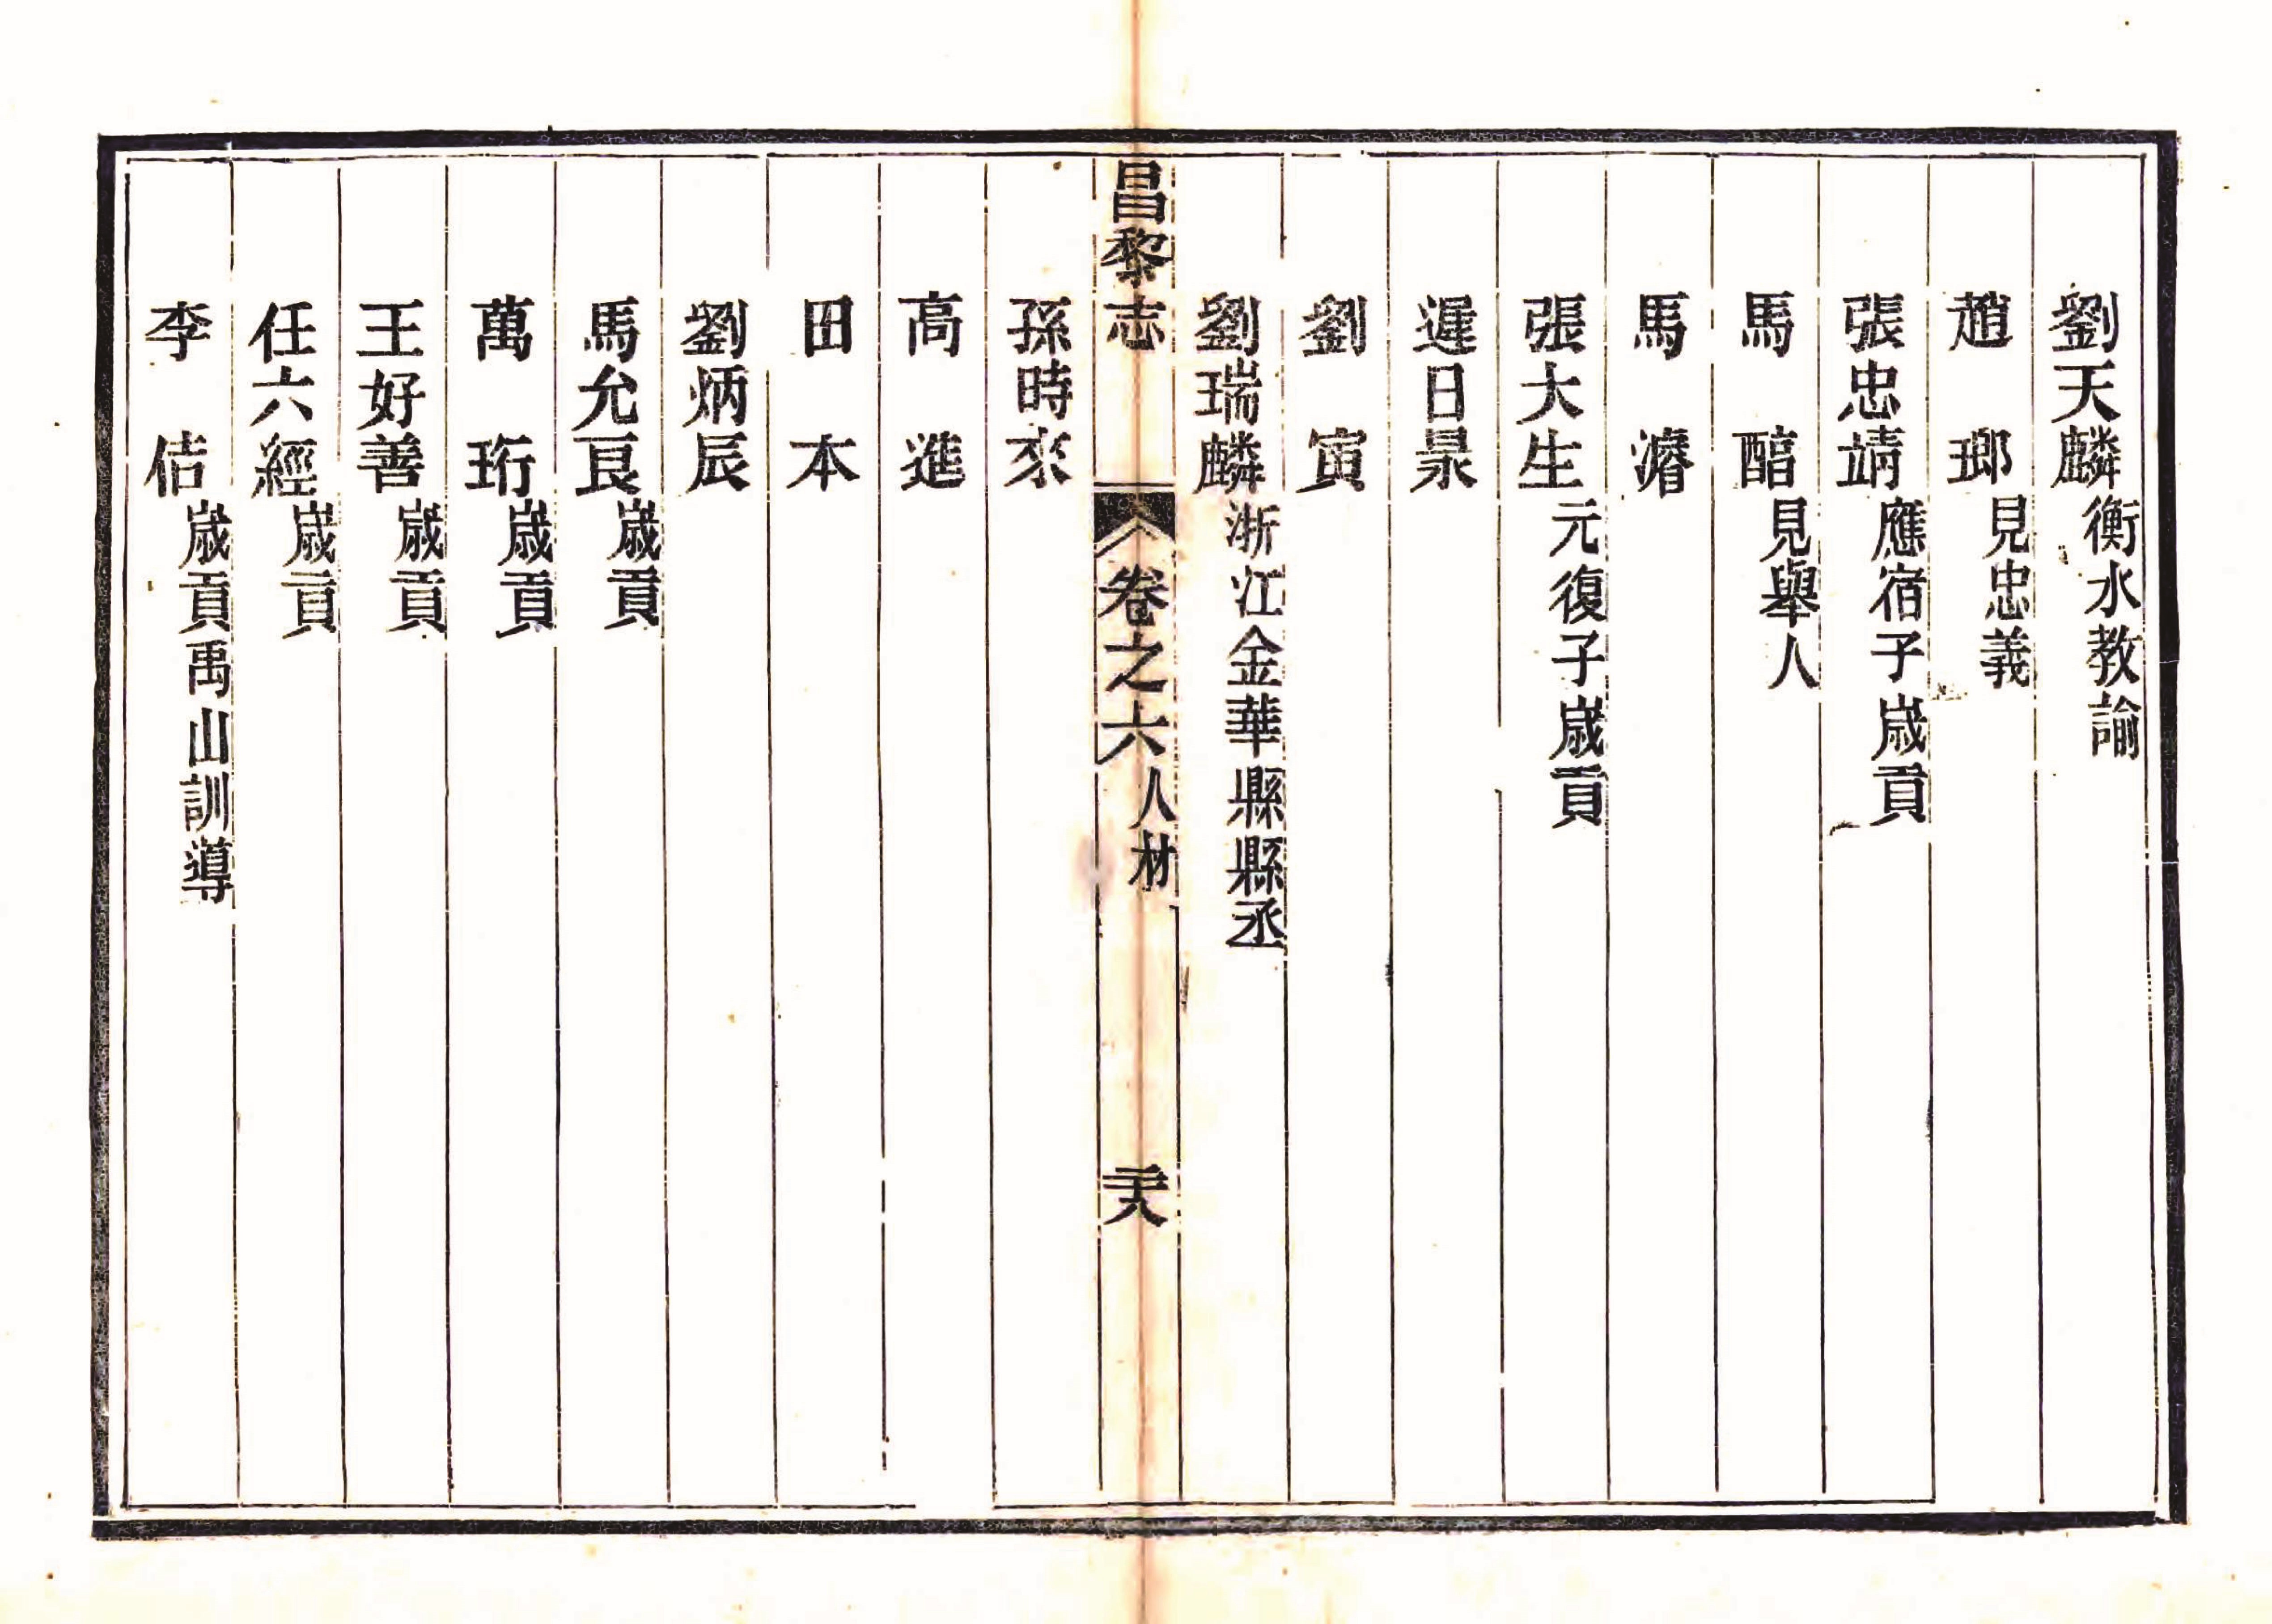 劉天麟衡水教諭
趙瑯見忠義
張忠靖應宿子歲貢
馬䤘見舉人
馬濬
張大生元復子歲貢
遲日
劉寅
劉瑞麟浙江金華縣縣丞
昌黎志 卷之六人材 天
孫時來
高進
田本
劉炳辰
馬允良歲貢
萬珩歲貢
王好善歲貢
任六經歲貢
李佶歲貢禹山訓導